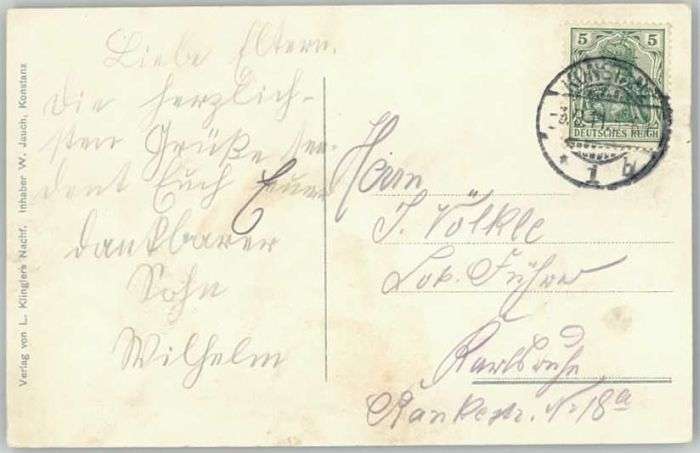 Liebe Eltern.
Die herzlich-
sten Grüße sen
det Euch Euer
dankbarer
Sohn
Wilhelm
Herrn
J. Völkle
Lok. Führer
Karlsruhe
Rankestr. No 18a
5 5
DEUTSCHES REICH
KONSTANZ
* 1 b
Verlag von L. Klinglers Nachf. Inhaber W. Jauch, Konstanz